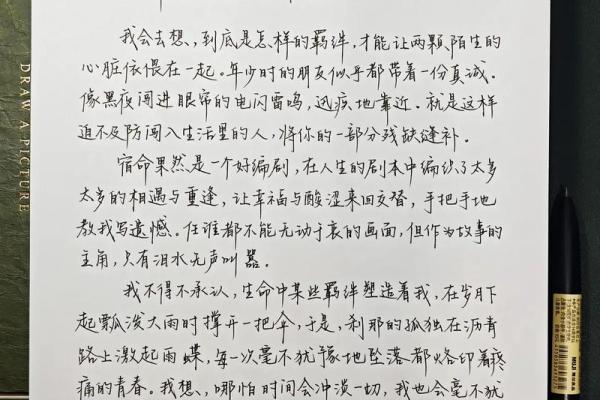 我会去想，到底是怎样的羁绊，才能让两颗陌生的
心脏依偎在一起。年少时的朋友似乎都带着一份真诚。
像黑夜闯进眼帘的电闪雷鸣，迅疾地靠近。就是这样
迫不及防闯入生活里的人，将你的一部分残缺缝补。
宿命果然是一个好编剧，在人生的剧本中编织了太多
太多的相遇与重逢，让幸福与酸涩来回交替，手把手地
教我写遗憾。任谁都不能无动于衷的画面，但作为故事的
主角，只有泪水无声叫嚣。
我不得不承认，生命中某些羁绊塑造着我，在岁月下
起瓢泼大雨时撑开一把伞，于是，刹那的孤独在沥青
路上激起雨蝶，每一次毫不犹豫地坠落都烙印着疼
痛的青春。我想，哪怕时间会冲溃一切，我也会毫不犹
DRAW A PICTURE
MUJI